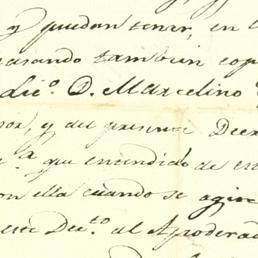 y puedan tener, en l
pasando tambien cop
Lic.º D. Marcelino
por, y del presente Decr
.ª que entendido de es
on ella cuando se agir
este Dec.to al Apoderad